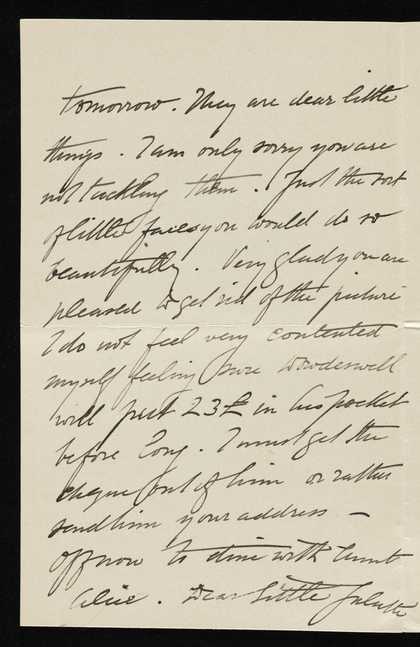 tomorrow. They are dear little
things. I am only sorry you are
not tackling them. Just the sort
of little faces you would do so
beautifully. Very glad you are
pleased to get rid of the picture
I do not feel very contented
myself feeling sure Dowdeswell
will put 23£ in his pocket
before long. I must get the
cheque out of him or rather
send him your address —
off now to dine with Aunt
Alice. Dear Little